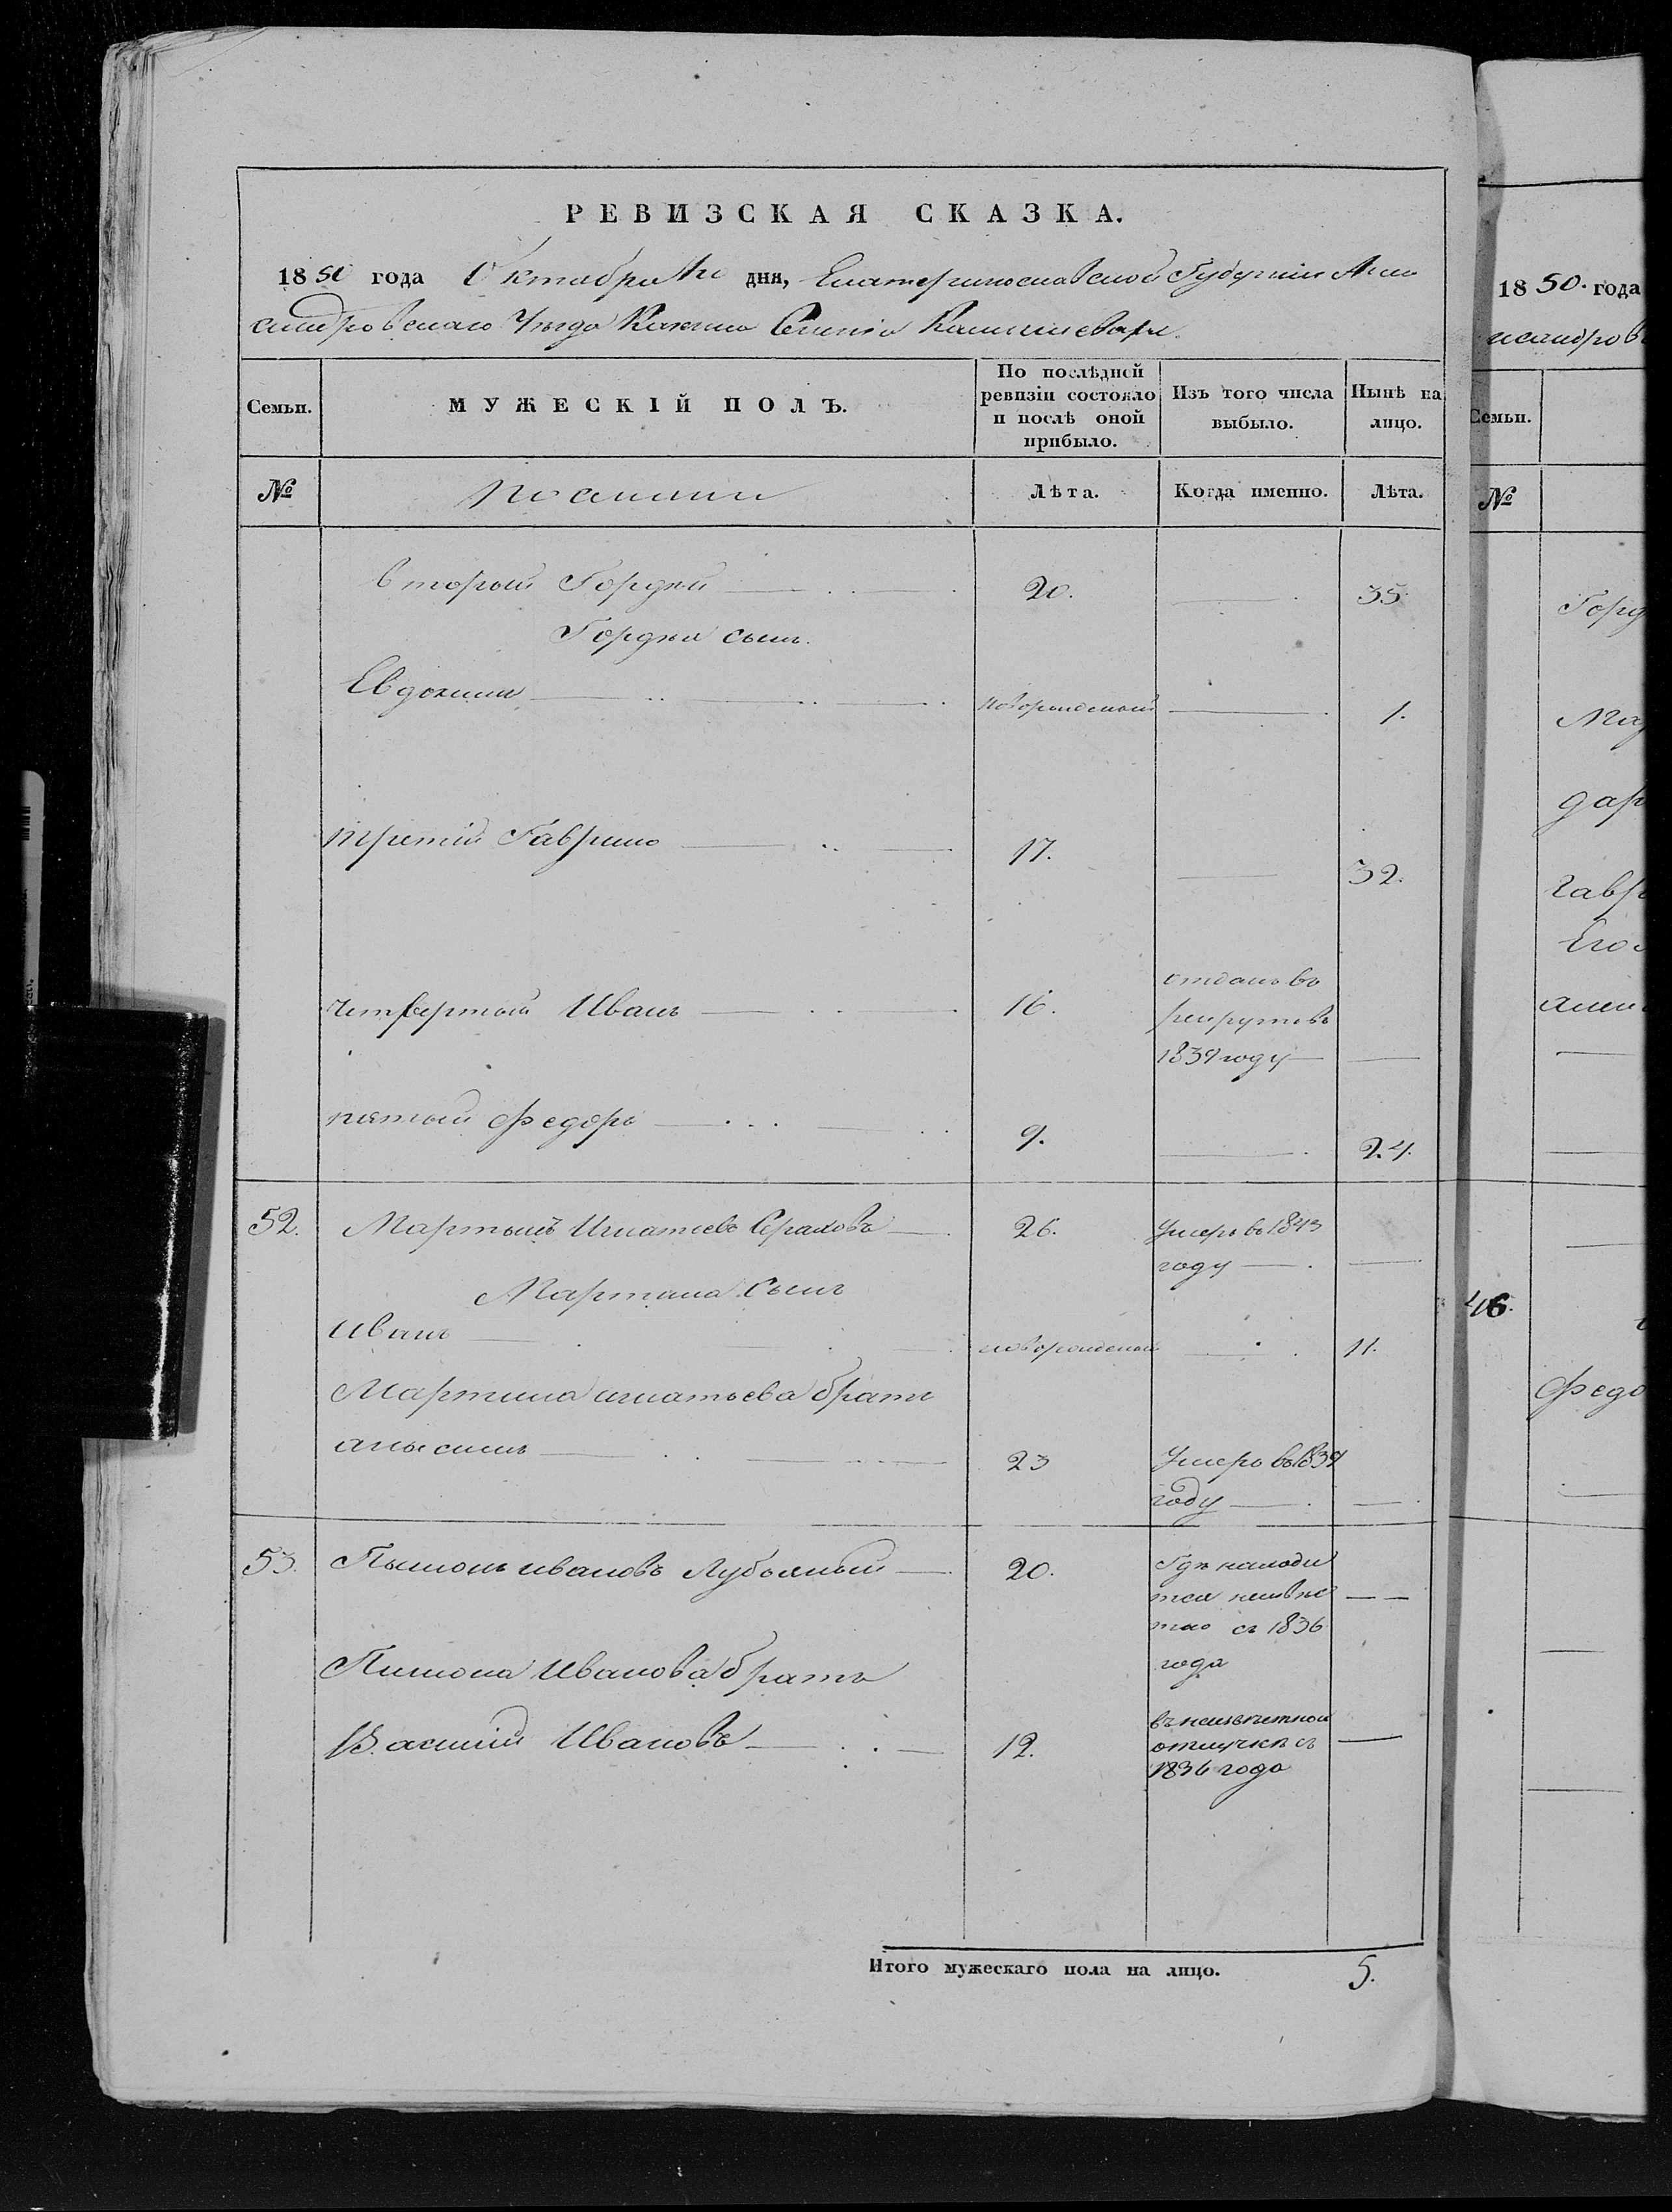 РЕВИЗСКАЯ СКАЗКА.
1850 года Октября дня, Екатеринославской Губернии Алек
сандровскаго Уезда Казенно Селенія Камышевахи.
Семьи. МУЖЕСКІЙ ПОЛЪ. По послѣдней ревизіи состояло и послѣ оной прибыло. Изъ того числа выбыло. Нынѣ на лицо.
№ Лѣта. Когда именно. Лѣта.
вторый Гордѣй 20. 35.
Гордѣя сынъ.
Евдокимъ новорожденый 1.
третій Гаврило 17. 32.
четвертый Иванъ 16. отданъ въ
рекруты въ
1839 году
пятый Федоръ 9. 24.
52. Мартынъ Игнатьевъ Сраловъ 26. Умеръ въ 1843
году
Мартина Сынъ
Иванъ новорожденый 11.
Мартина игнатьева братъ
анисимъ 23 Умеръ въ 1839
году
53. Пымонъ ивановъ Лубяный 20. Гдѣ находи
тся неизвѣс
тно съ 1836
года
Пимона Иванова братъ
Василій Ивановъ 12. въ неизвѣстной
отлучкѣ съ
1836 года
Итого мужескаго пола на лицо. 5.
1850. года
ксандров
Семьи.
№
Горд
Мар
дар
гавр
Его
46.
Федо